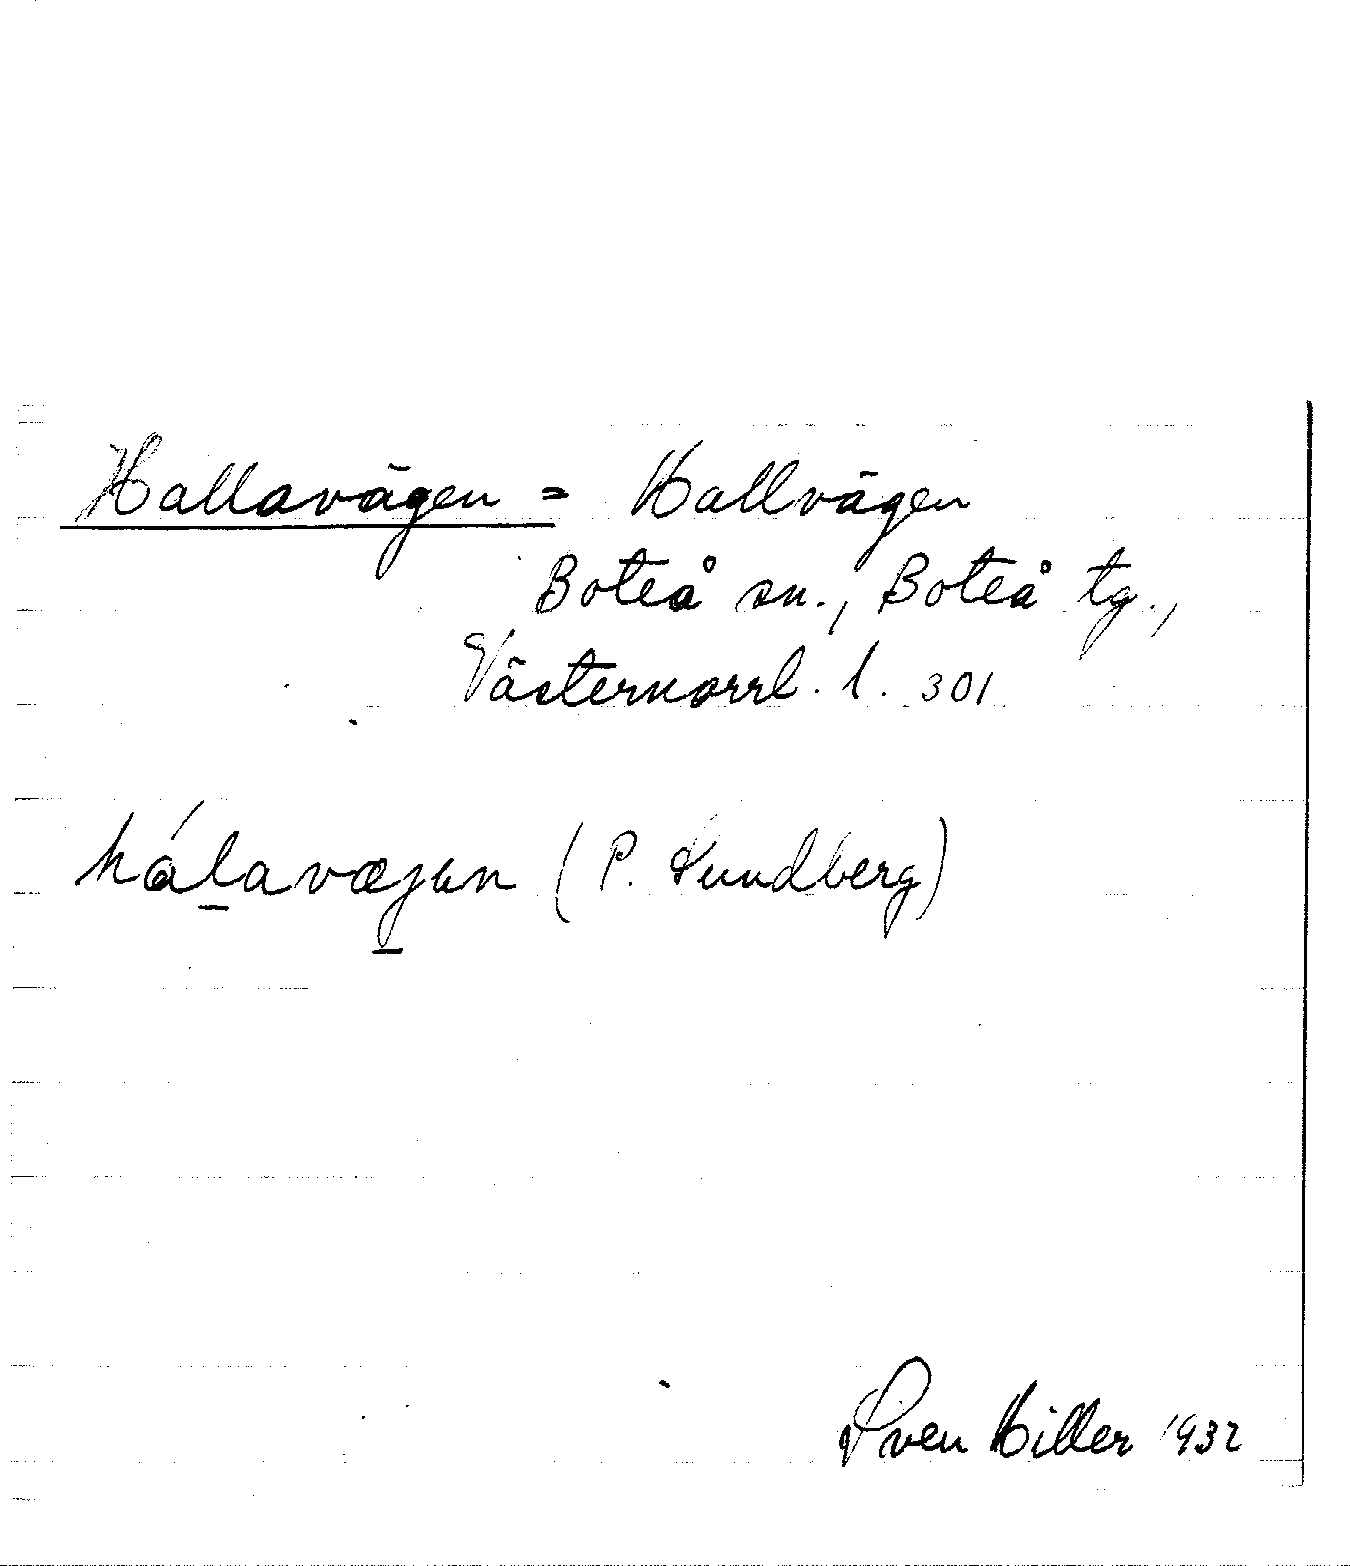 Hallavägen = Hallvägen
Boteå sn., Boteå tg.,
Västernorrl. l. 301
hál̠avæj̠ən (P. Sundberg)
Sven Hiller 1932